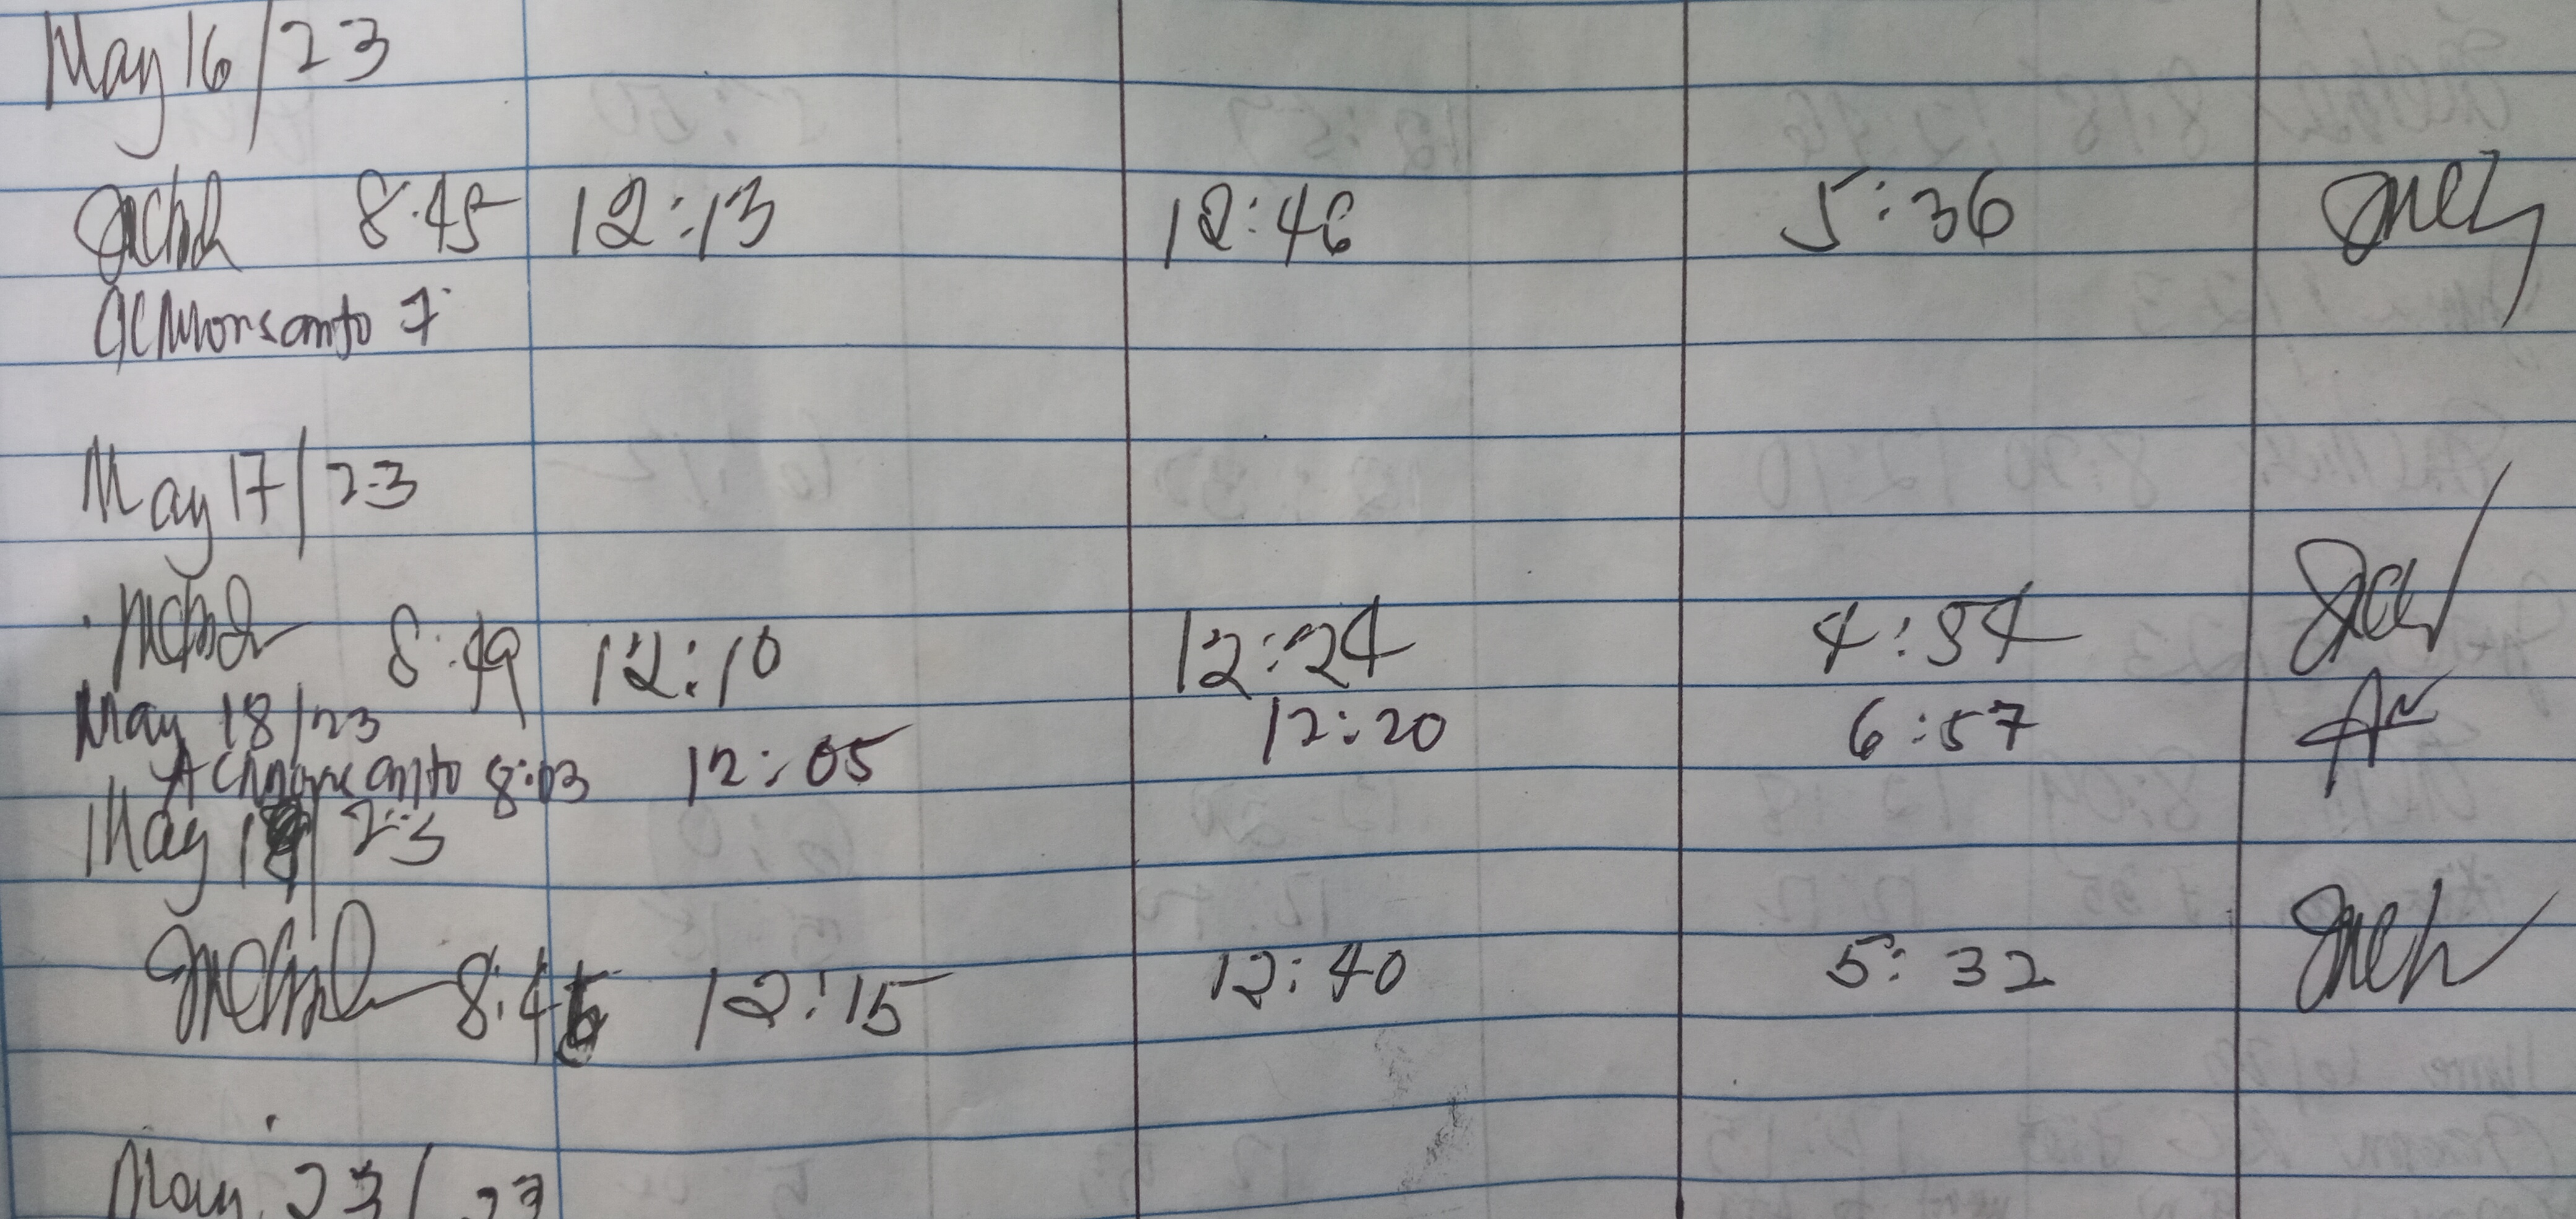 May 16/23
8:45 12:13 12:46 5:36
ACMonsanto 7
May 17/23
8:49 12:10 12:24 4:54
May 18/23 12:20 6:57
ACMonsanto 8:03 12:05
May 19/23
8:45 12:15 12:40 5:32
May 23/23